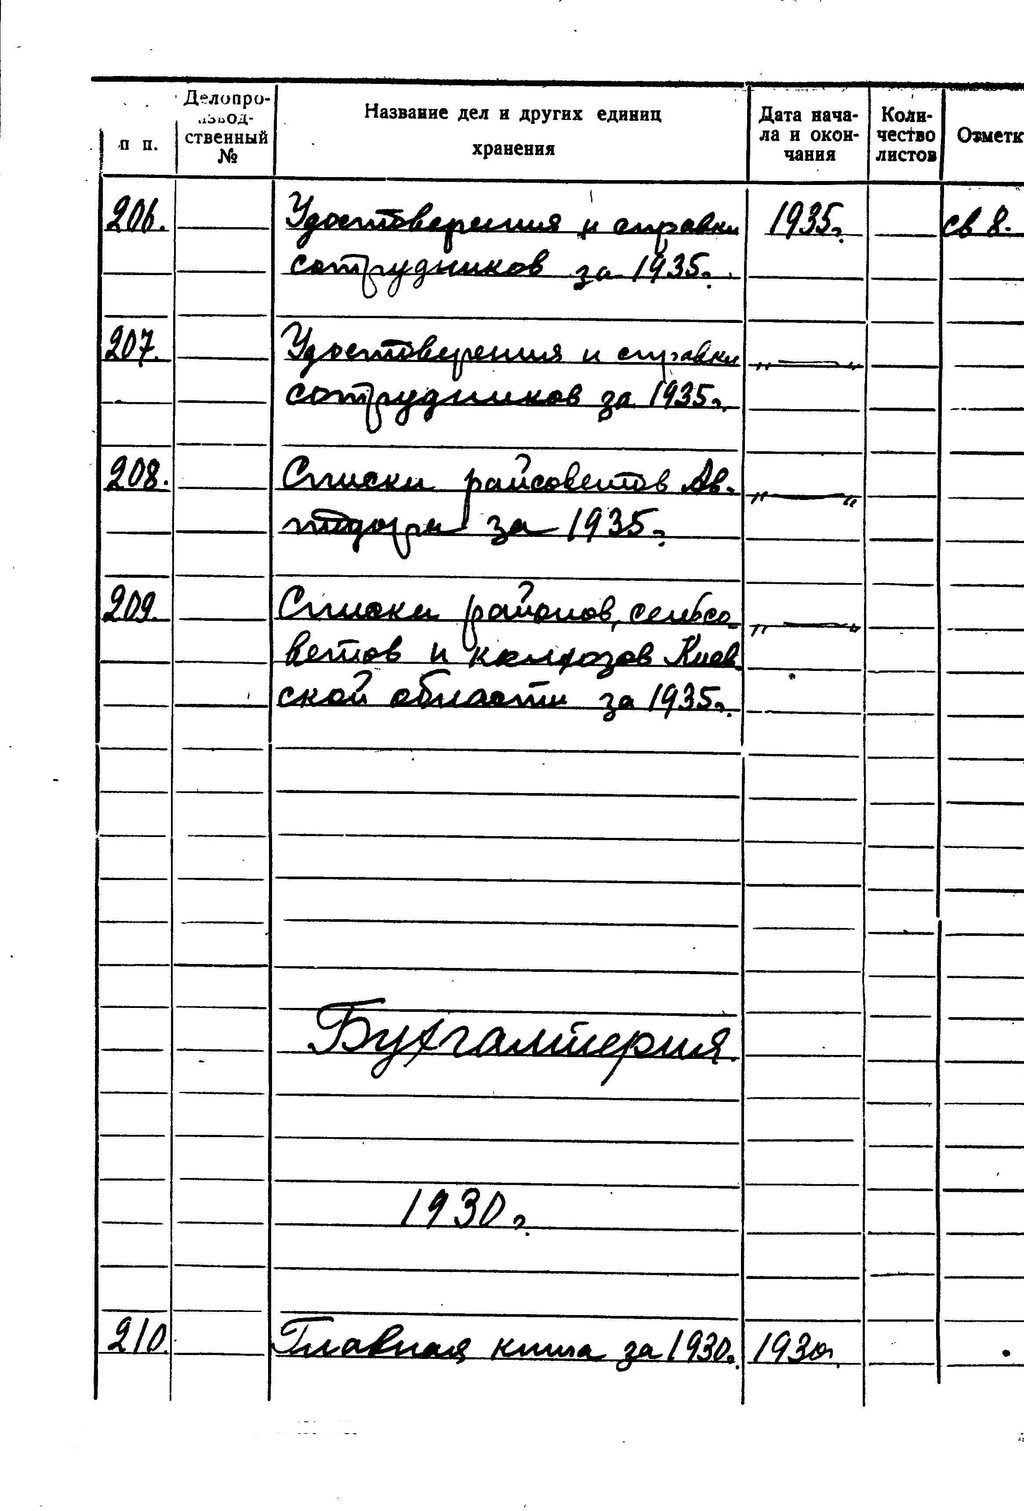 п п.
Делопро-
извод-
ственный
№
Название дел и других единиц
хранения
Дата нача-
ла и окон-
чания
Коли-
чество
листов
Отметк
206. Удостоверения и справки 1935г. св 8.
сотрудников за 1935г.
207. Удостоверения и справки „ — “
сотрудников за 1935г.
208. Списки райсоветов Ав- „ — “
тодора за 1935г.
209. Списки районов, сельсо- „ — “
ветов и колхозов Киев
ской области за 1935г.
Бухгалтерия
1930г.
210. Главная книга за 1930г. 1930г.